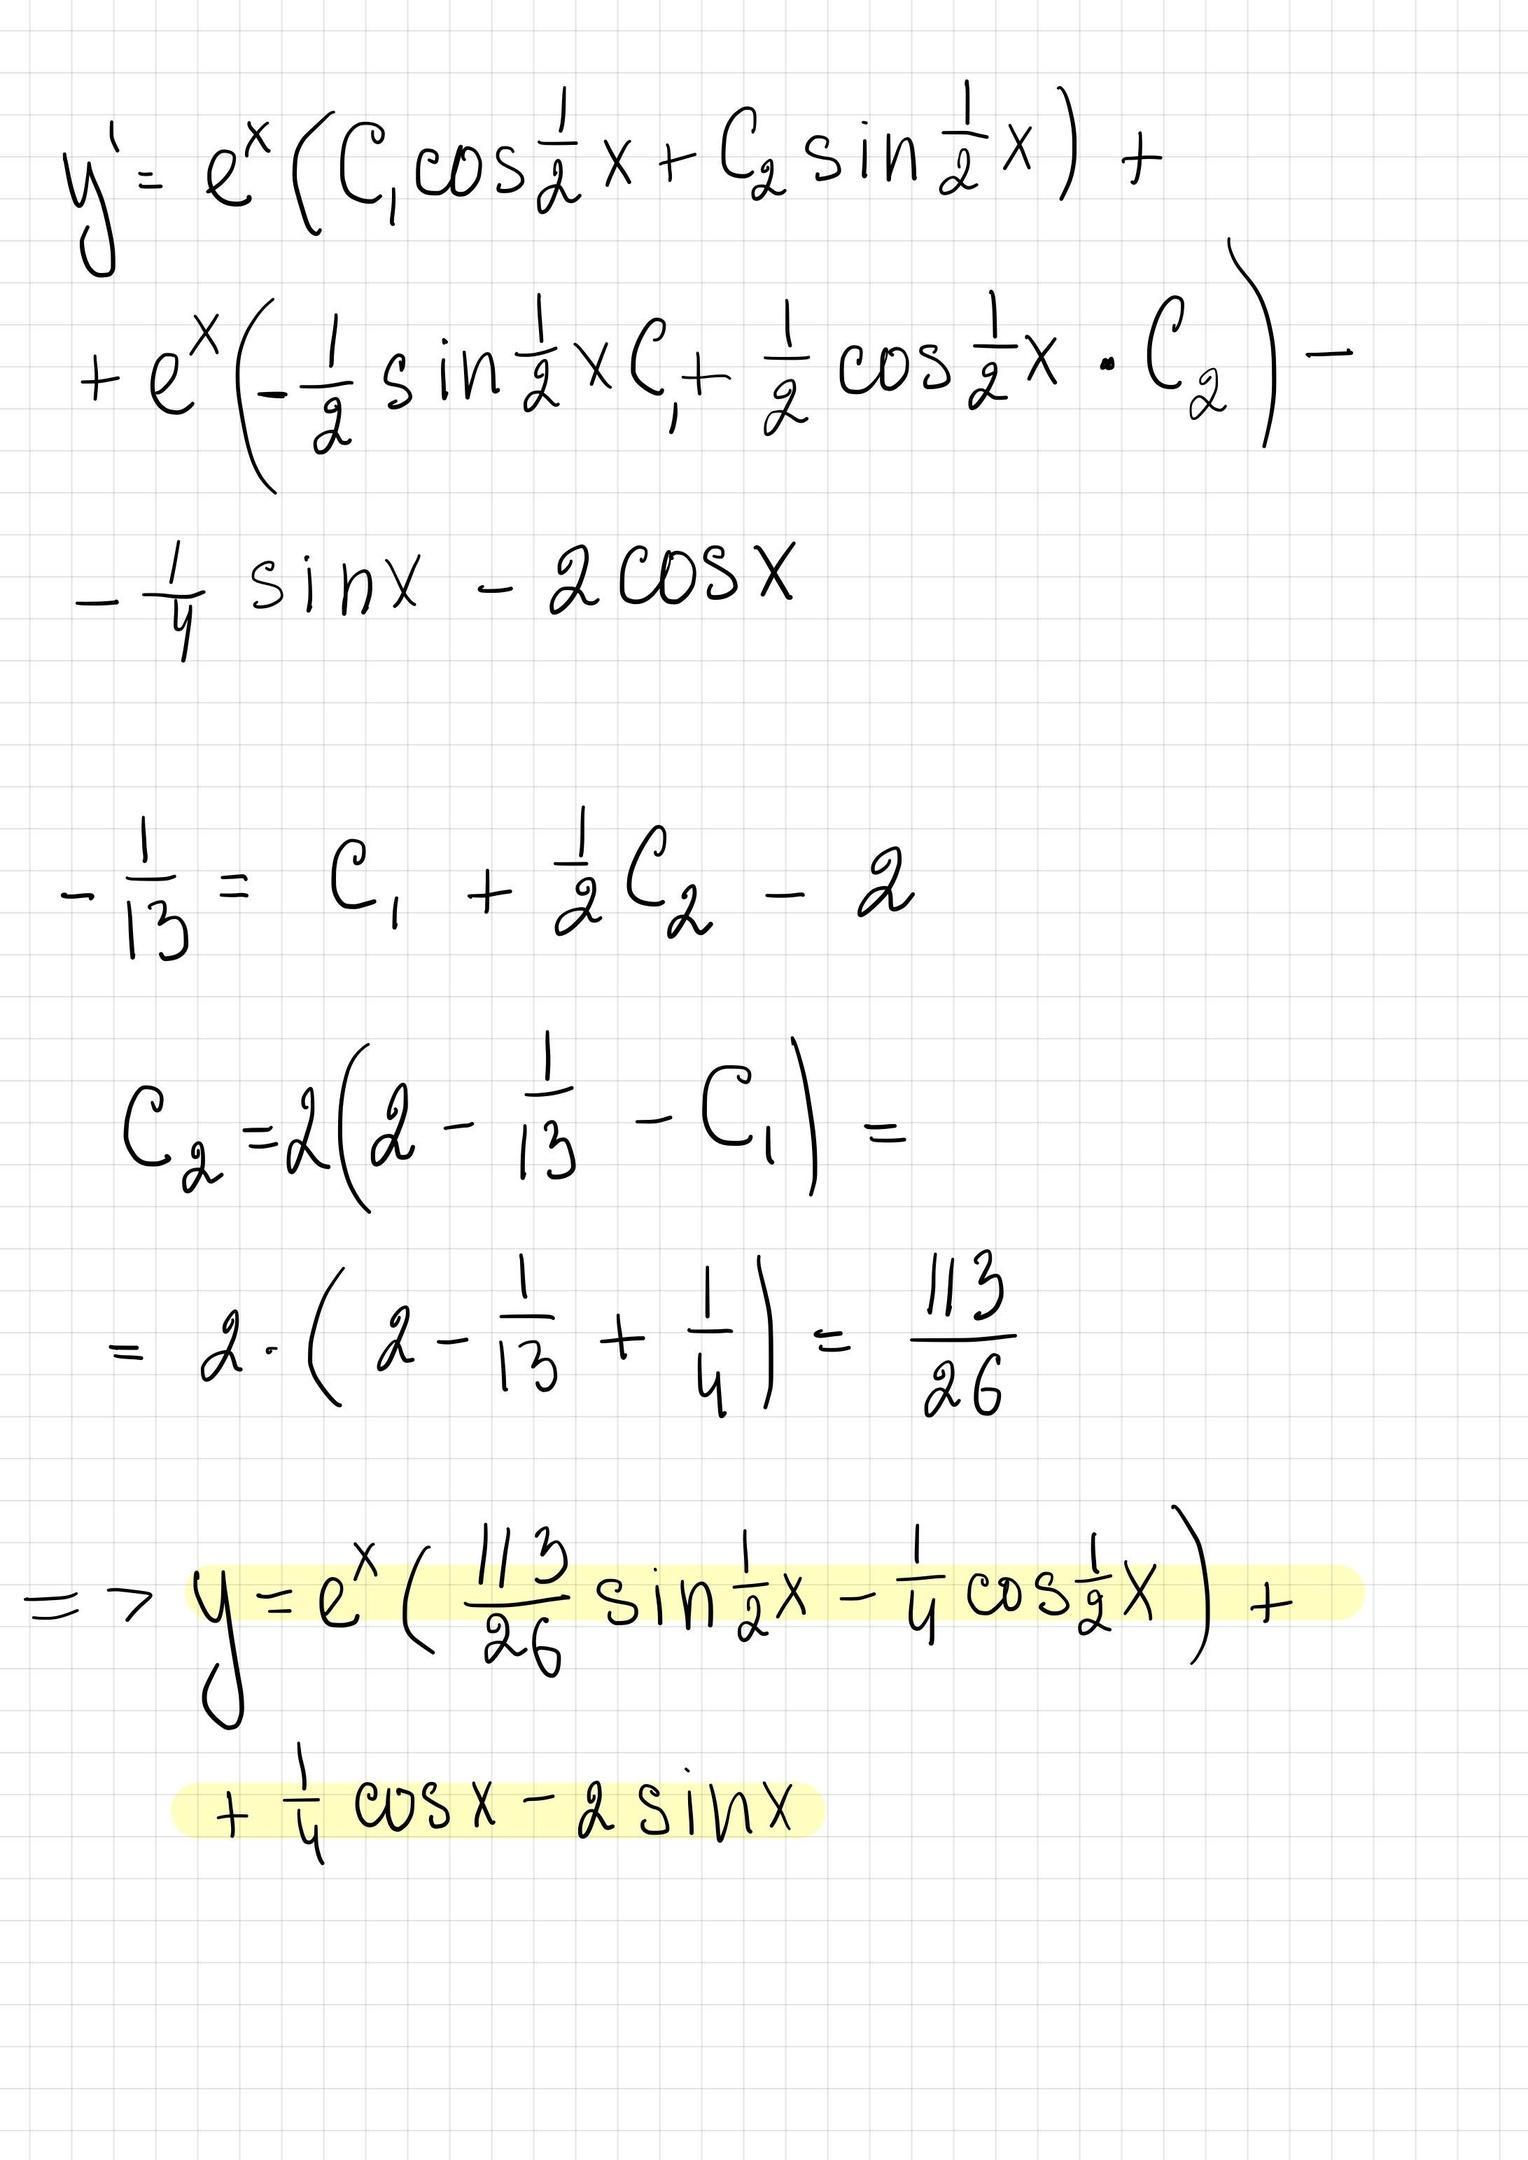 y' = e^x (C₁ cos 1/2 x + C₂ sin 1/2 x) +
+ e^x (- 1/2 sin 1/2 x C₁ + 1/2 cos 1/2 x · C₂) -
- 1/4 sin x - 2 cos x
- 1/13 = C₁ + 1/2 C₂ - 2
C₂ = 2(2 - 1/13 - C₁) =
= 2 · (2 - 1/13 + 1/4) = 113/26
=> y = e^x (113/26 sin 1/2 x - 1/4 cos 1/2 x) +
+ 1/4 cos x - 2 sin x